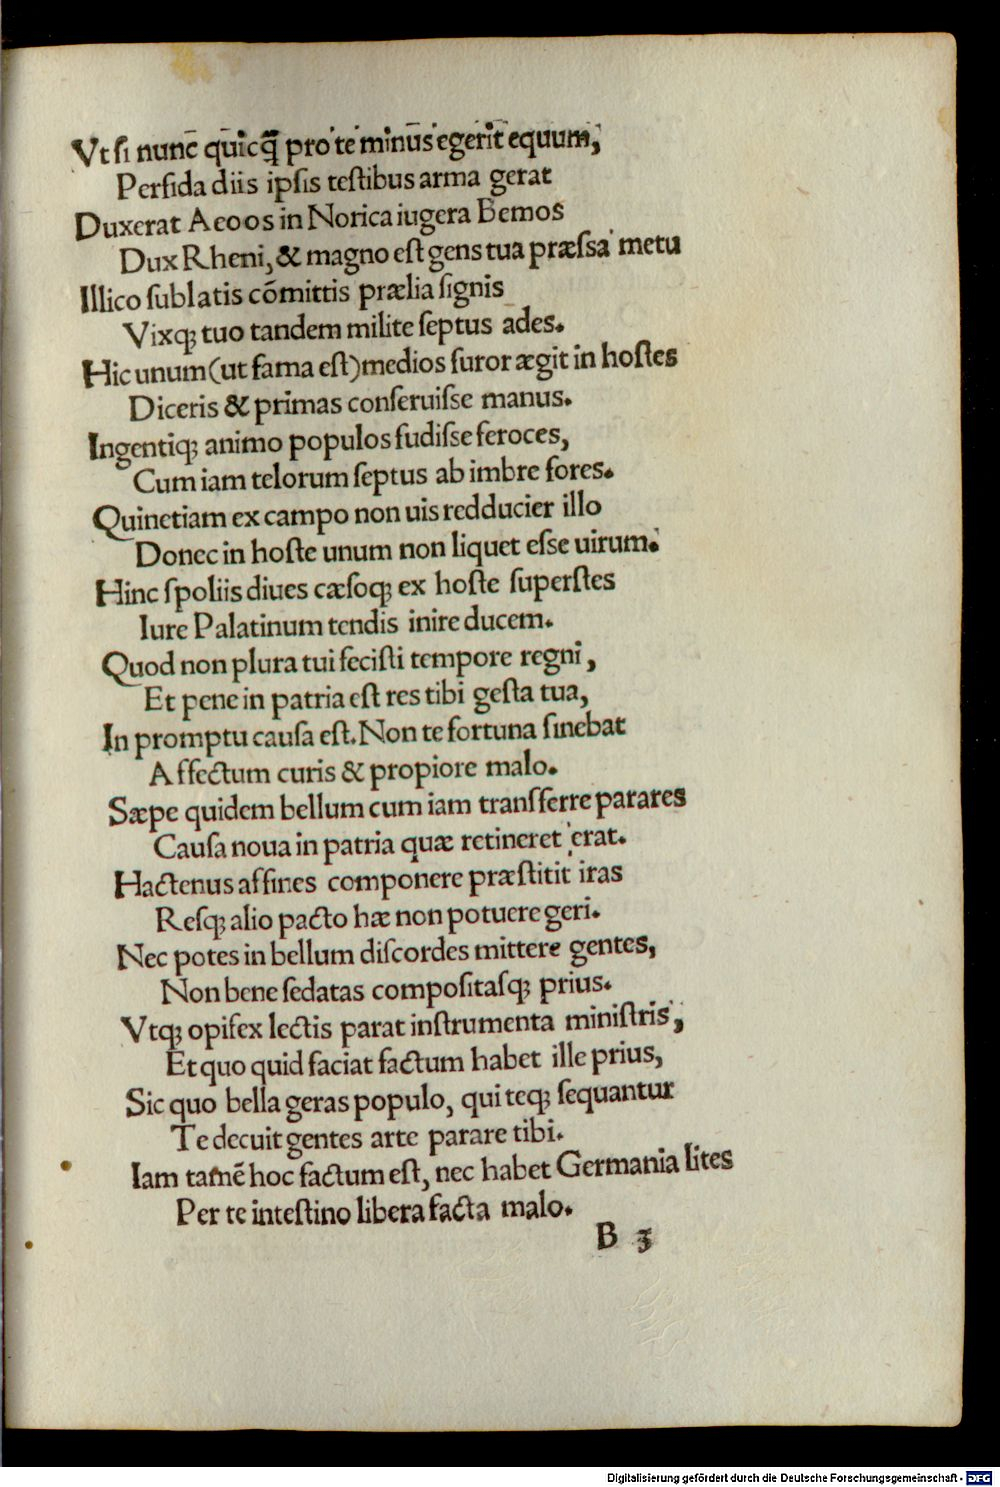 Vt ſi nunc̄ quicq̄ pro te minus egerit equum,
Perſida diis ipſis teſtibus arma gerat
Duxerat Aeoos in Norica iugera Bemos
Dux Rheni, & magno eſt gens tua præſſa metu
Illico ſublatis cōmittis prælia ſignis
Vixq; tuo tandem milite ſeptus ades.
Hic unum (ut fama eſt) medios furor ægit in hoſtes
Diceris & primas conſeruiſſe manus.
Ingentiq; animo populos fudiſſe feroces,
Cum iam telorum ſeptus ab imbre fores.
Quinetiam ex campo non uis redducier illo
Donec in hoſte unum non liquet eſſe uirum.
Hinc ſpoliis diues cæſoq; ex hoſte ſuperſtes
Iure Palatinum tendis inire ducem.
Quod non plura tui feciſti tempore regni,
Et pene in patria eſt res tibi geſta tua,
In promptu cauſa eſt. Non te fortuna ſinebat
Affectum curis & propiore malo.
Sæpe quidem bellum cum iam tranſferre parares
Cauſa noua in patria quæ retineret erat.
Hactenus affines componere præſtitit iras
Reſq; alio pacto hæ non potuere geri.
Nec potes in bellum diſcordes mittere gentes,
Non bene ſedatas compoſitaſq; prius.
Vtq; opifex lectis parat inſtrumenta miniſtris,
Et quo quid faciat factum habet ille prius,
Sic quo bella geras populo, qui teq; ſequantur
Te decuit gentes arte parare tibi.
Iam tamē hoc factum eſt, nec habet Germania lites
Per te inteſtino libera facta malo.
B 3
Digitalisierung gefördert durch die Deutsche Forschungsgemeinschaft - DFG